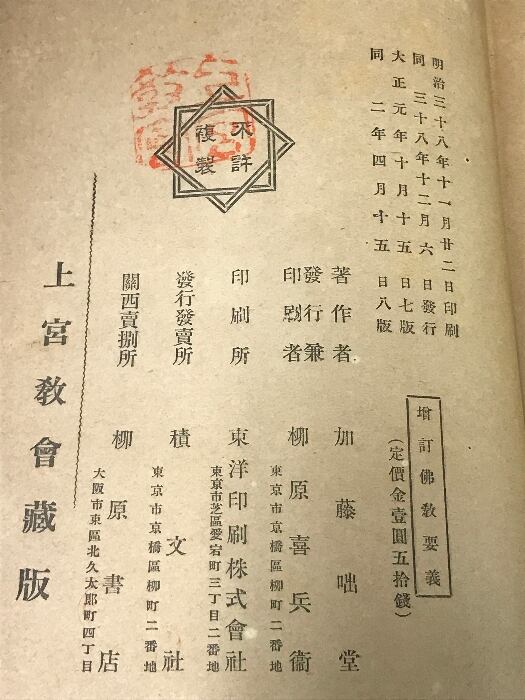 明治三十八年十一月廿二日印刷
同三十八年十二月六日發行
大正元年十月十五日七版
同二年四月十五日八版
不許
複製
增訂佛敎要義
(定價金壹圓五拾錢)
著作者 加藤咄堂
發行兼
印刷者 柳原喜兵衞
東京市京橋區柳町二番地
印刷所 東洋印刷株式會社
東京市芝區愛宕町三丁目二番地
發行發賣所 積文社
東京市京橋區柳町二番地
關西賣捌所 柳原書店
大阪市東區北久太郎町四丁目
上宮敎會藏版